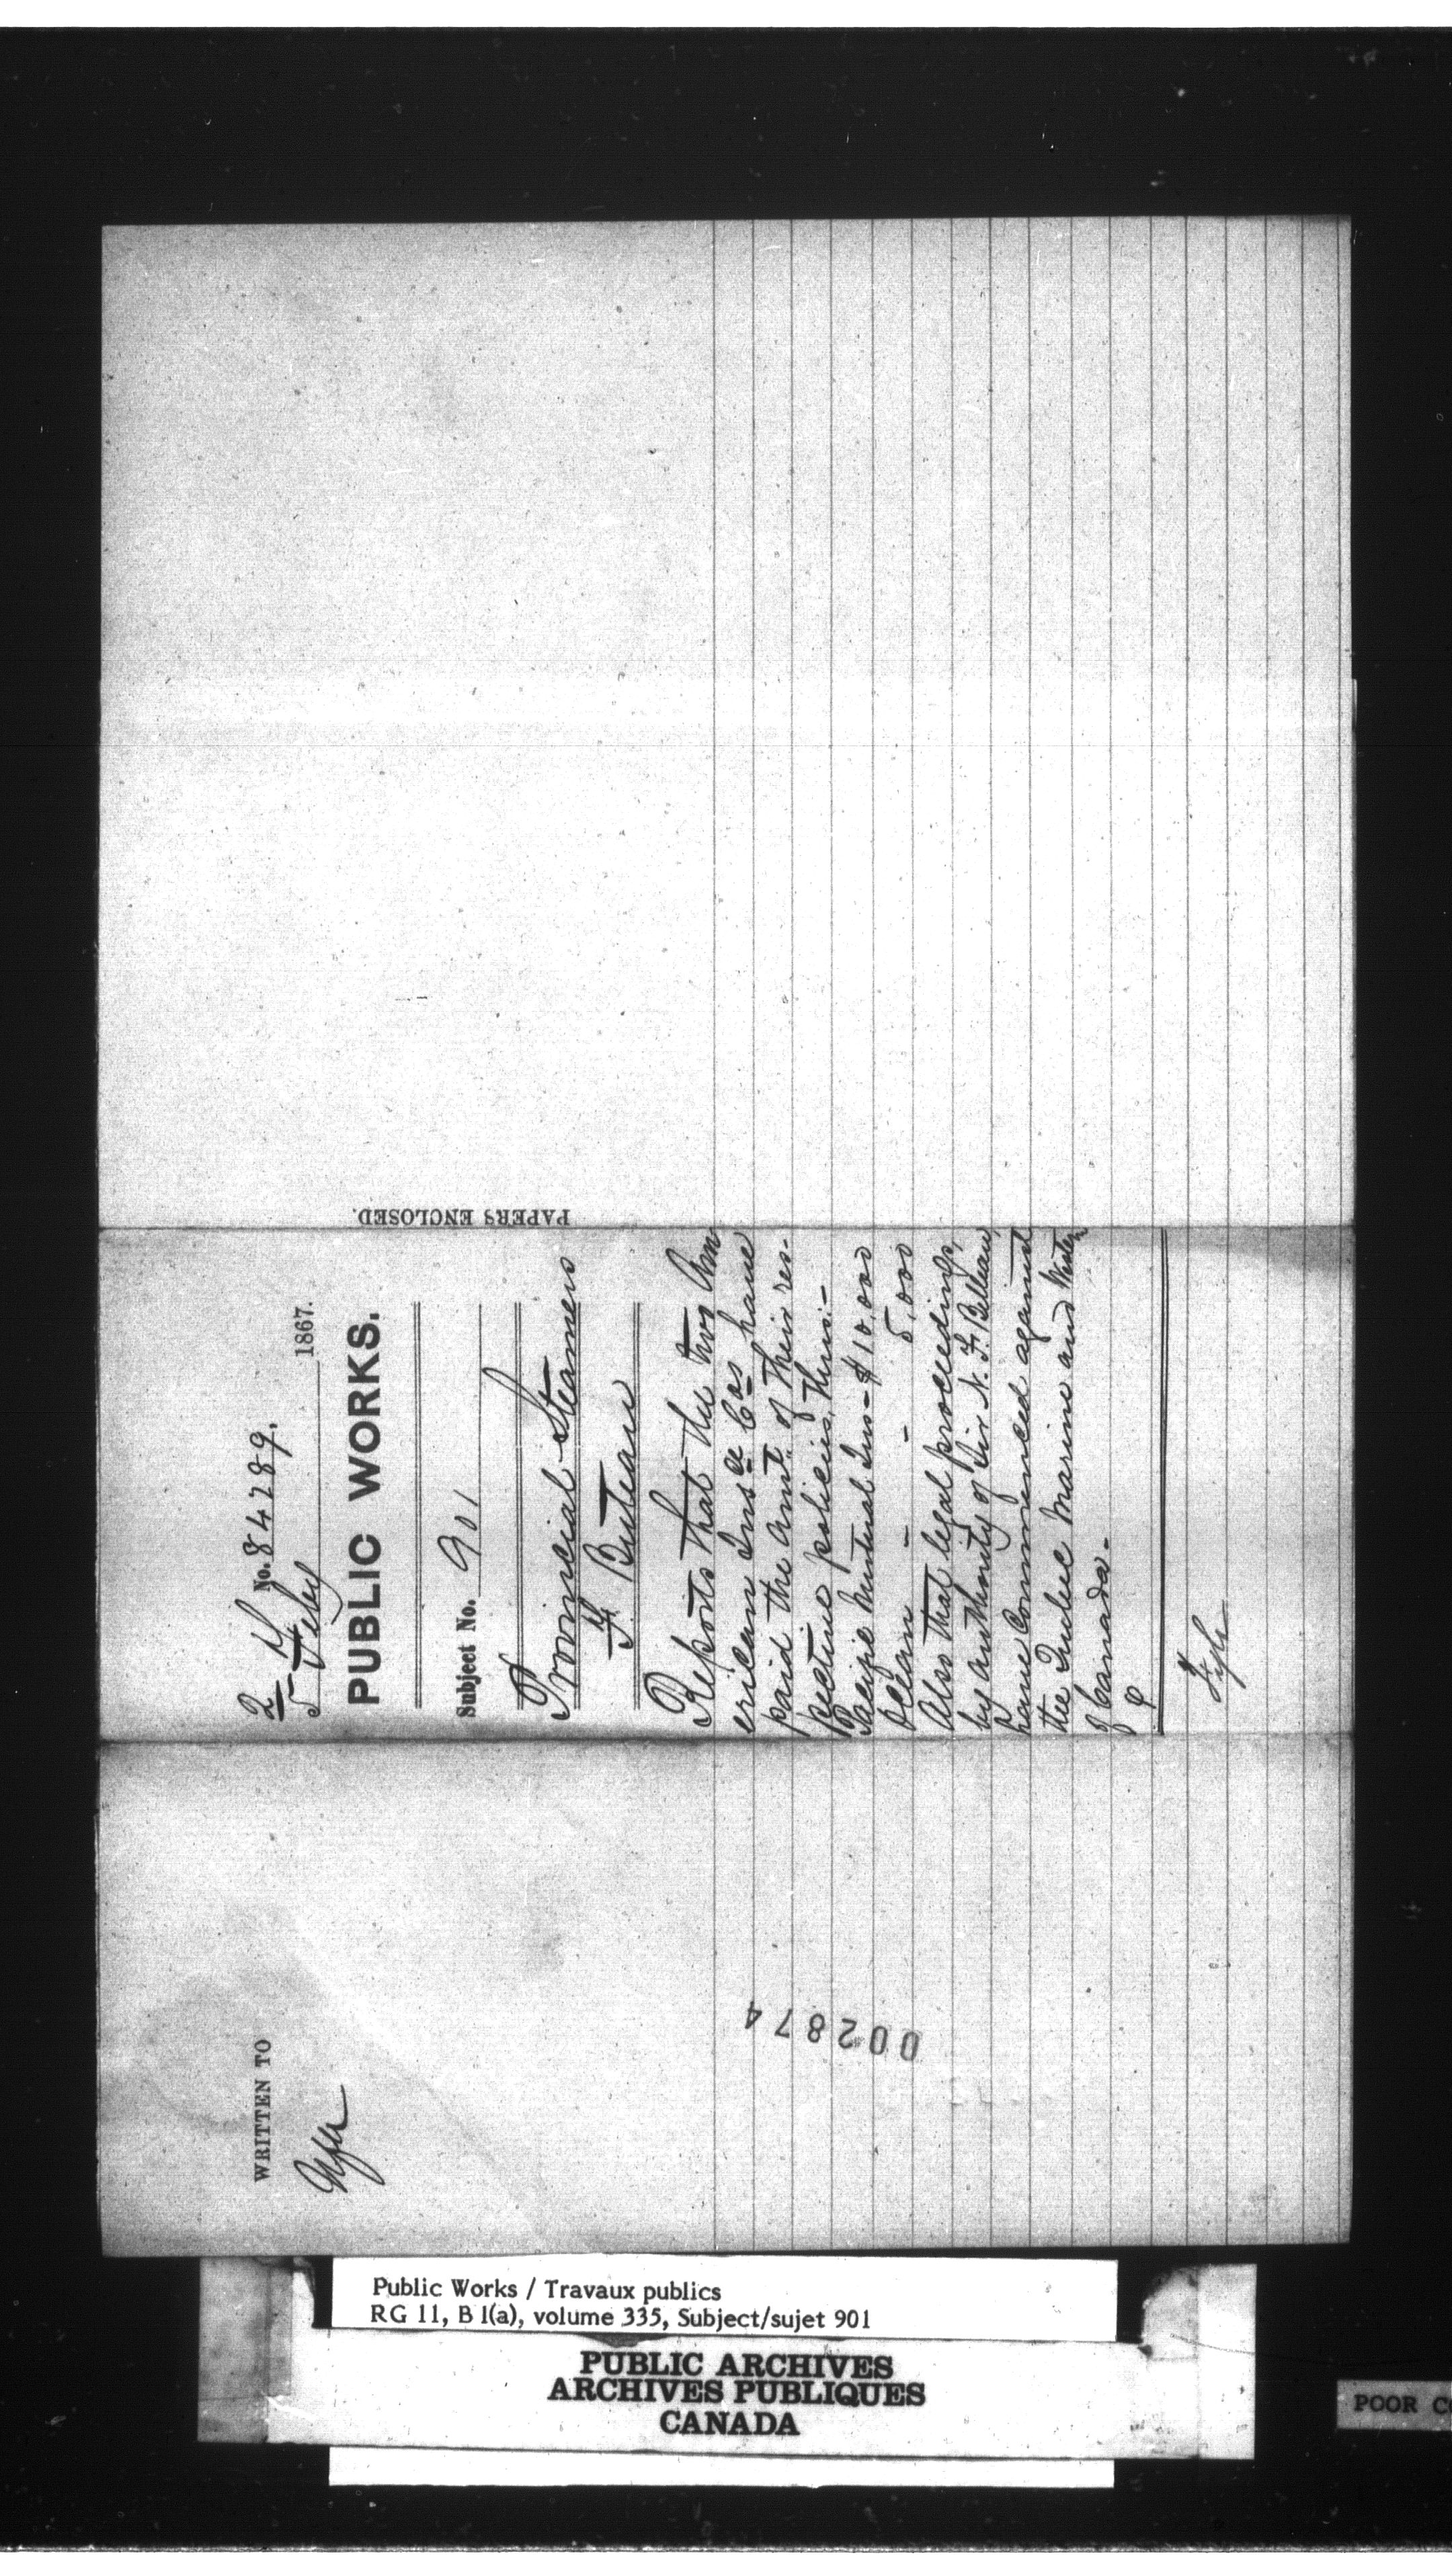 No. 84289.
5 Feby 1867.
PUBLIC WORKS.
Subject No. 901
Provincial Steamers
F. Buteau
Reports that the two Am
erican Insce Cos have
paid the Amt. of their res-
pective policies, thus:-
Pacific Mutual Ins - $10,000
Ocean - - 5,000
Also that legal proceedings,
by authority of Sir N. F. Belleau,
have commenced against
the Quebec Marine and Western
of Canada -
Fyle
PAPERS ENCLOSED.
WRITTEN TO
002874
Public Works / Travaux publics
RG 11, B 1(a), volume 335, Subject/sujet 901
PUBLIC ARCHIVES
ARCHIVES PUBLIQUES
CANADA
POOR